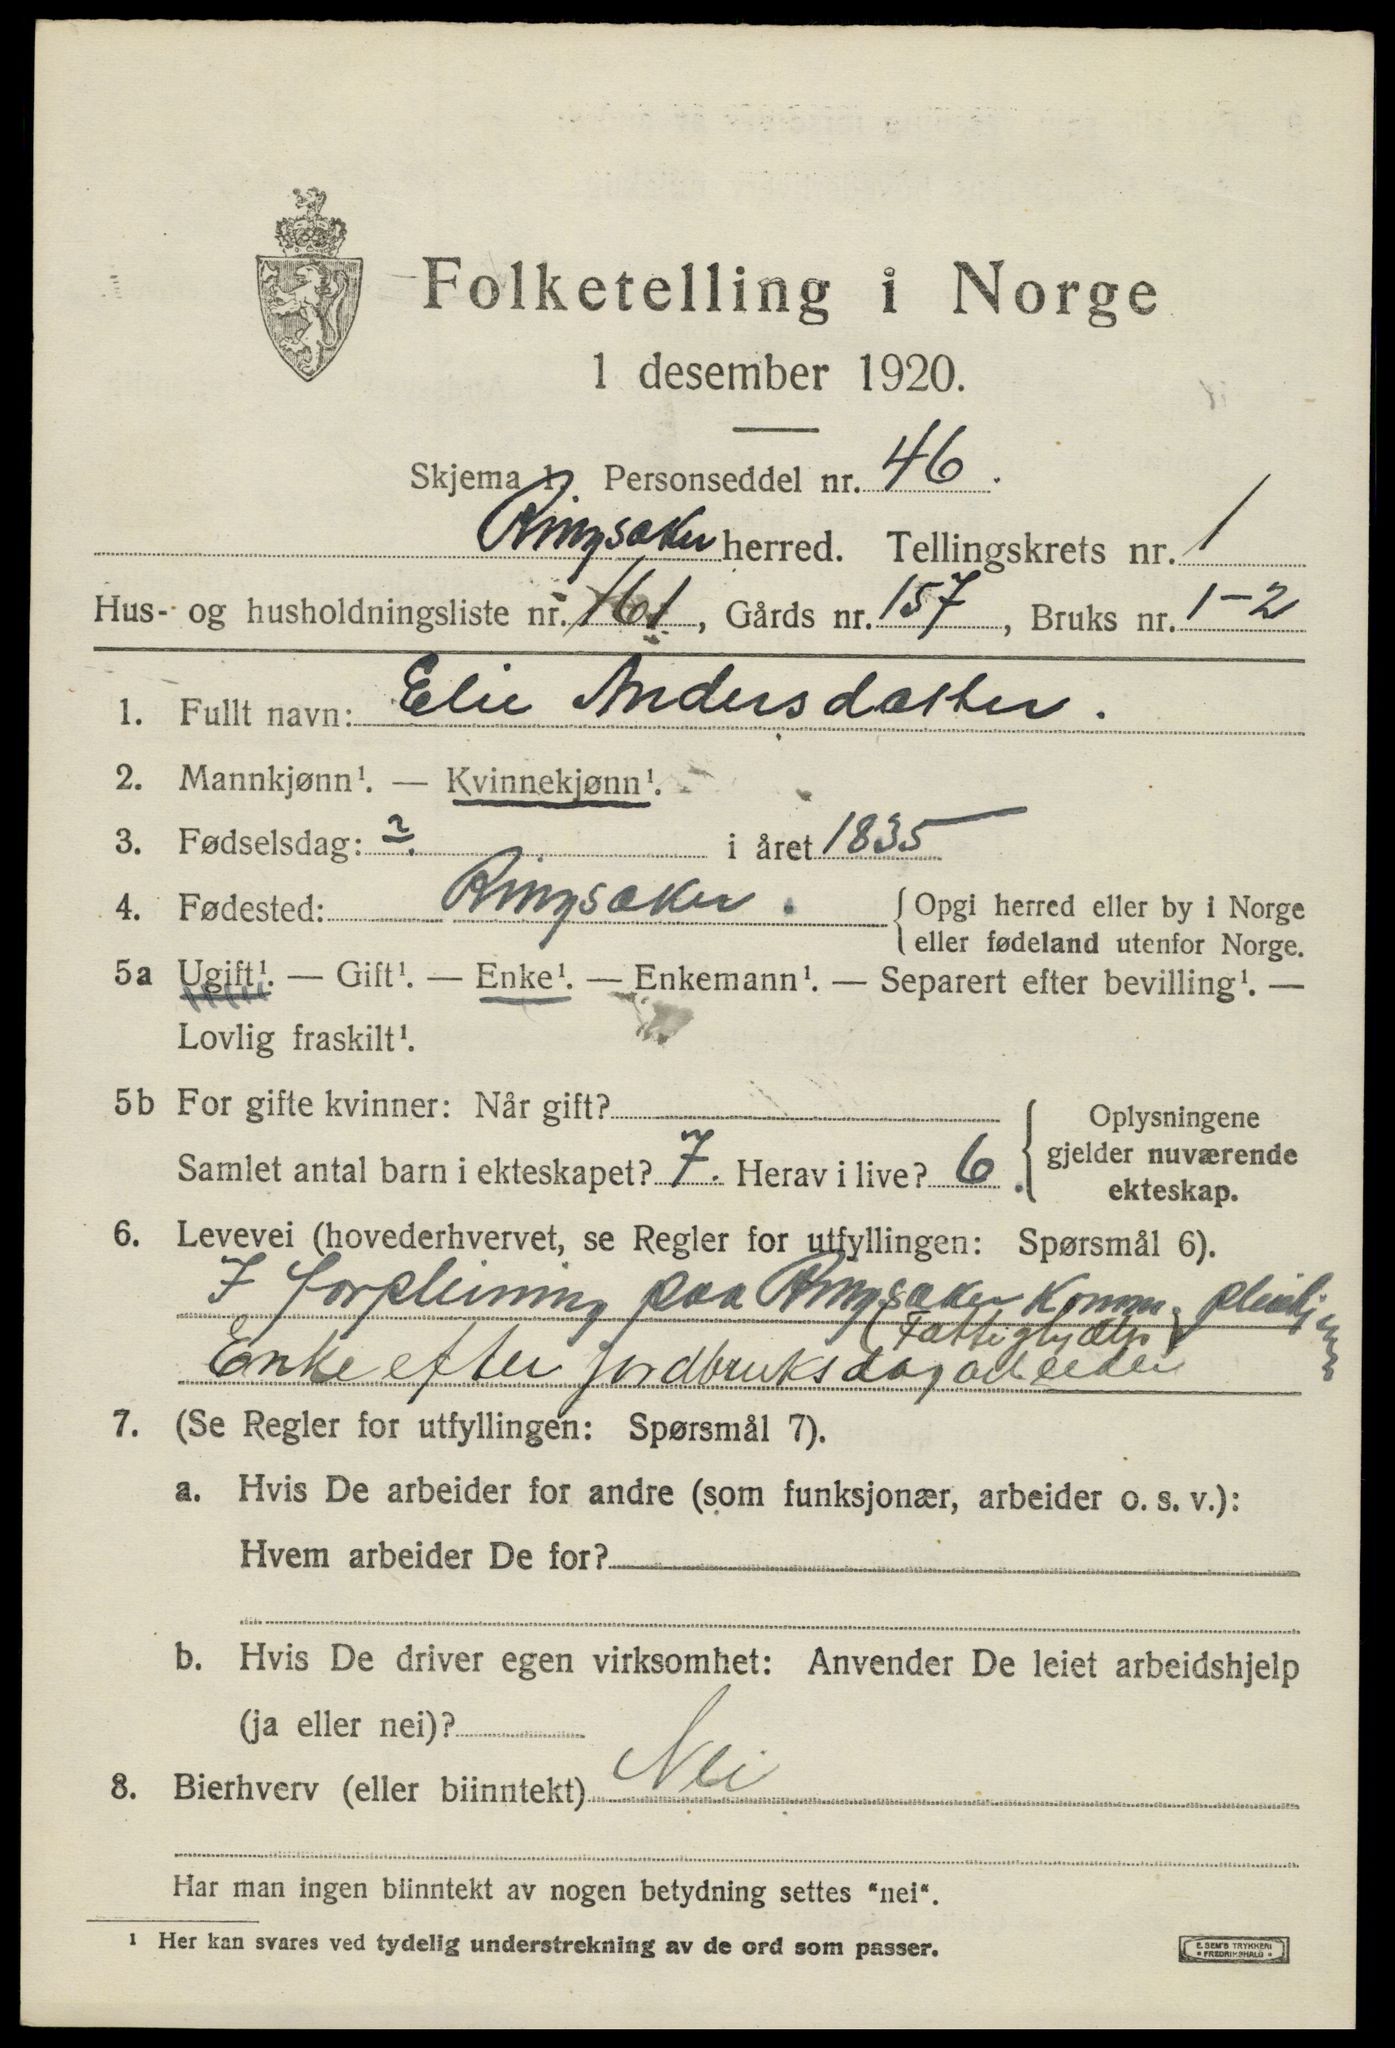 Folketelling i Norge
1 desember 1920.
Skjema 1. Personseddel nr. 46.
Ringsaker herred. Tellingskrets nr. 1
Hus- og husholdningsliste nr. 161, Gårds nr. 157, Bruks nr. 1-2
1. Fullt navn: Elie Andersdatter.
2. Mannkjønn¹. — Kvinnekjønn¹.
3. Fødselsdag: ?. i året 1835
4. Fødested: Ringsaker. { Opgi herred eller by i Norge
eller fødeland utenfor Norge.
5a Ugift¹. — Gift¹. — Enke¹. — Enkemann¹. — Separert efter bevilling¹. —
Lovlig fraskilt¹.
5b For gifte kvinner: Når gift?
Samlet antal barn i ekteskapet? 7. Herav i live? 6.
{ Oplysningene
gjelder nuværende
ekteskap.
6. Levevei (hovederhvervet, se Regler for utfyllingen: Spørsmål 6).
I forpleining paa Ringsaker Komm. pleiehjem
(Fattigbydlp)
Enke efter jordbruksdagarbeider
7. (Se Regler for utfyllingen: Spørsmål 7).
a. Hvis De arbeider for andre (som funksjonær, arbeider o. s. v.):
Hvem arbeider De for?
b. Hvis De driver egen virksomhet: Anvender De leiet arbeidshjelp
(ja eller nei)?
8. Bierhverv (eller biinntekt) Nei
Har man ingen biinntekt av nogen betydning settes "nei".
¹ Her kan svares ved tydelig understrekning av de ord som passer.
E. SEM'S TRYKKERI
• FREDRIKSHALD •